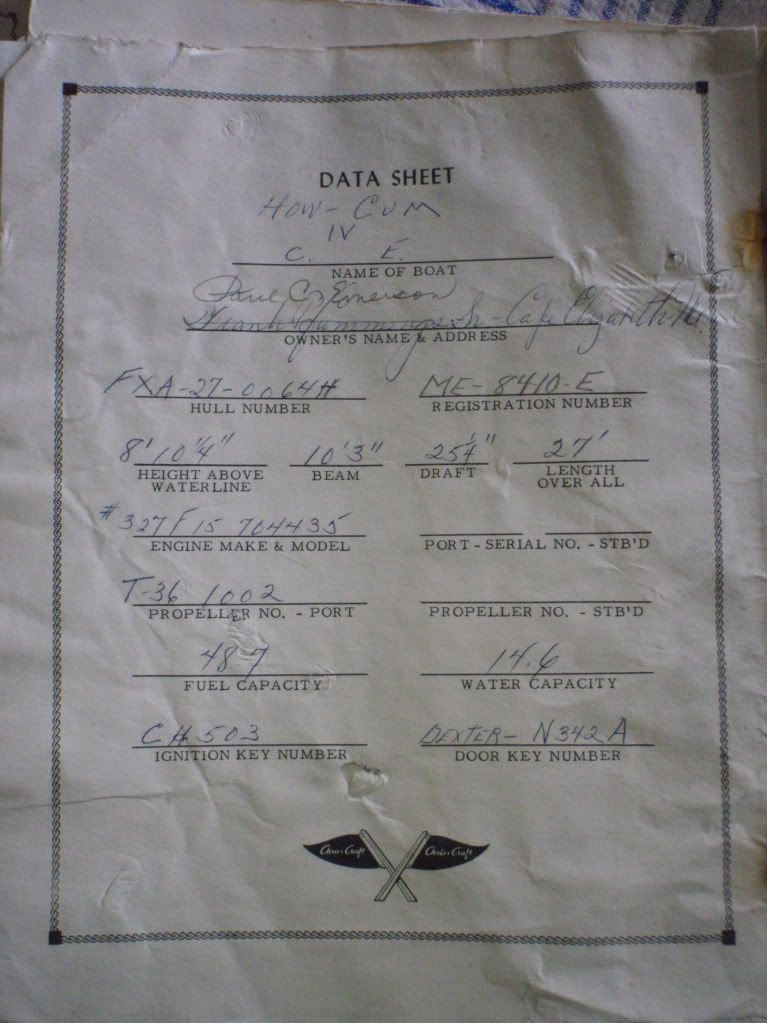 DATA SHEET
HOW-CUM
IV
C. E.
NAME OF BOAT
Paul C. Emerson
Frank Jummings Sr - Cape Elizabeth Me.
OWNER'S NAME & ADDRESS
FXA-27-0064H ME-8410-E
HULL NUMBER REGISTRATION NUMBER
8' 10 1/4" 10'3" 25 1/4" 27'
HEIGHT ABOVE WATERLINE BEAM DRAFT LENGTH OVER ALL
#327F15 704435
ENGINE MAKE & MODEL PORT - SERIAL NO. - STB'D
T-36 1002
PROPELLER NO. - PORT PROPELLER NO. - STB'D
48.7 14.6
FUEL CAPACITY WATER CAPACITY
CH503 DEXTER - N342A
IGNITION KEY NUMBER DOOR KEY NUMBER
Chris-Craft Chris-Craft